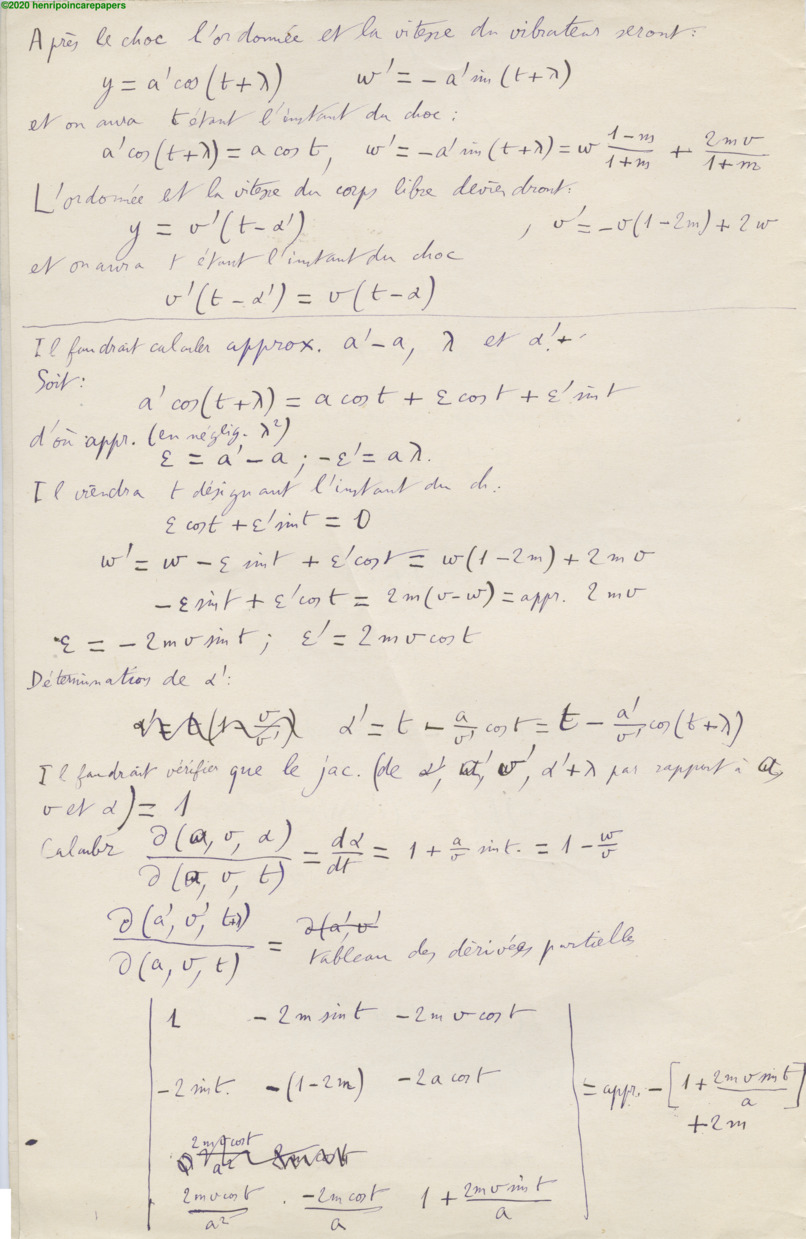 ©2020 henripoincarepapers
Après le choc l'ordonnée et la vitesse du vibrateur seront:
y = a' cos (t+λ)    w' = − a' sin (t+λ)
et on aura t étant l'instant du choc:
a' cos (t+λ) = a cos t,  w' = −a' sin (t+λ) = w (1−m)/(1+m) + 2mv/(1+m)
L'ordonnée et la vitesse du corps libre deviendront:
y = v'(t−α')  , v' = −v(1−2m) + 2w
et on aura t étant l'instant du choc
v'(t−α') = v(t−α)
Il faudrait calculer approx. a'−a, λ et α'+
Soit:
a' cos(t+λ) = a cos t + ε cos t + ε' sin t
d'où appr. (en néglig. λ²)
ε = a'−a ; −ε' = aλ.
Il viendra t désignant l'instant du ch:
ε cos t + ε' sin t = 0
w' = w − ε sin t + ε' cos t = w(1−2m) + 2mv
−ε sin t + ε' cos t = 2m(v−w) = appr. 2mv
ε = −2mv sin t ; ε' = 2mv cos t
Détermination de α':
α' = t − a/v' cos t = t − a'/v' cos(t+λ)
Il faudrait vérifier que le jac. (de v', α'+λ par rapport à a,
v et α) = 1
Calculer ∂(a, v, α)/∂(a, v, t) = dα/dt = 1 + a/v sin t. = 1 − w/v
∂(a', v', t+λ)/∂(a, v, t) = ∂(a', v'
tableau des dérivées partielles
1  −2m sin t  −2mv cos t
−2 sin t.  −(1−2m)  −2a cos t  = appr. −[1 + 2mv sin t/a]
+2m
2mv cos t/a²
2mv cos t/a² . −2m cos t/a  1 + 2mv sin t/a